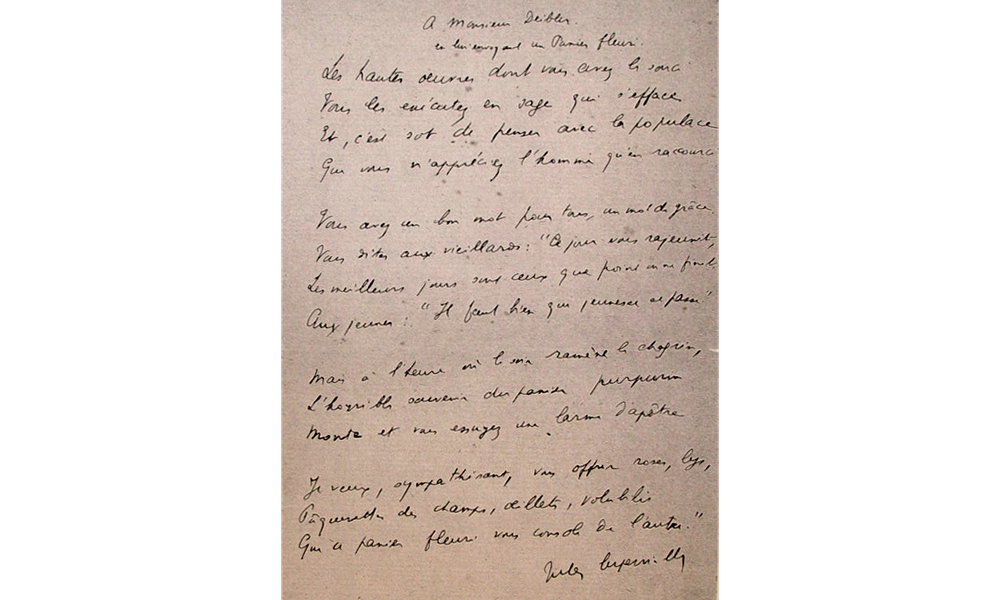 A Monsieur Deibler
en lui envoyant un Panier fleuri.
Les hautes oeuvres dont vous avez le souci
Vous les exécutez en sage qui s'efface
Et, c'est sot de penser avec la populace
Que vous n'appréciez l'homme qu'en raccourci
Vous avez un bon mot pour tous, un mot de grâce
Vous dites aux vieillards : "Ce jour vous rajeunit,
Les meilleurs jours sont ceux que point on ne finit
Aux jeunes : "Il faut bien que jeunesse se passe"
Mais à l'heure où le soir ramène le chagrin,
L'horrible souvenir du panier purpurin
Monte et vous essuyez une larme d'apôtre
Je veux, sympathisant, vous offrir roses, lys,
Pâquerettes des champs, oeillets, volubilis
Que ce panier fleuri vous console de l'autre."
Jules